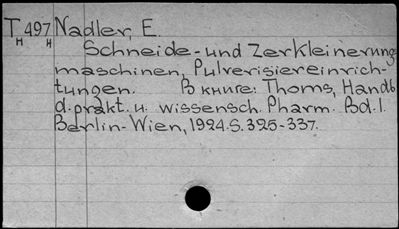 T 497 Nadler, E.
н н
Schneide- und Zerkleinerungs
maschinen, Pulverisiereinrich-
tungen. В книге: Thoms, Handb
d. prakt. u. wissensch. Pharm. Bd. I.
Berlin-Wien, 1924. S. 325-337.